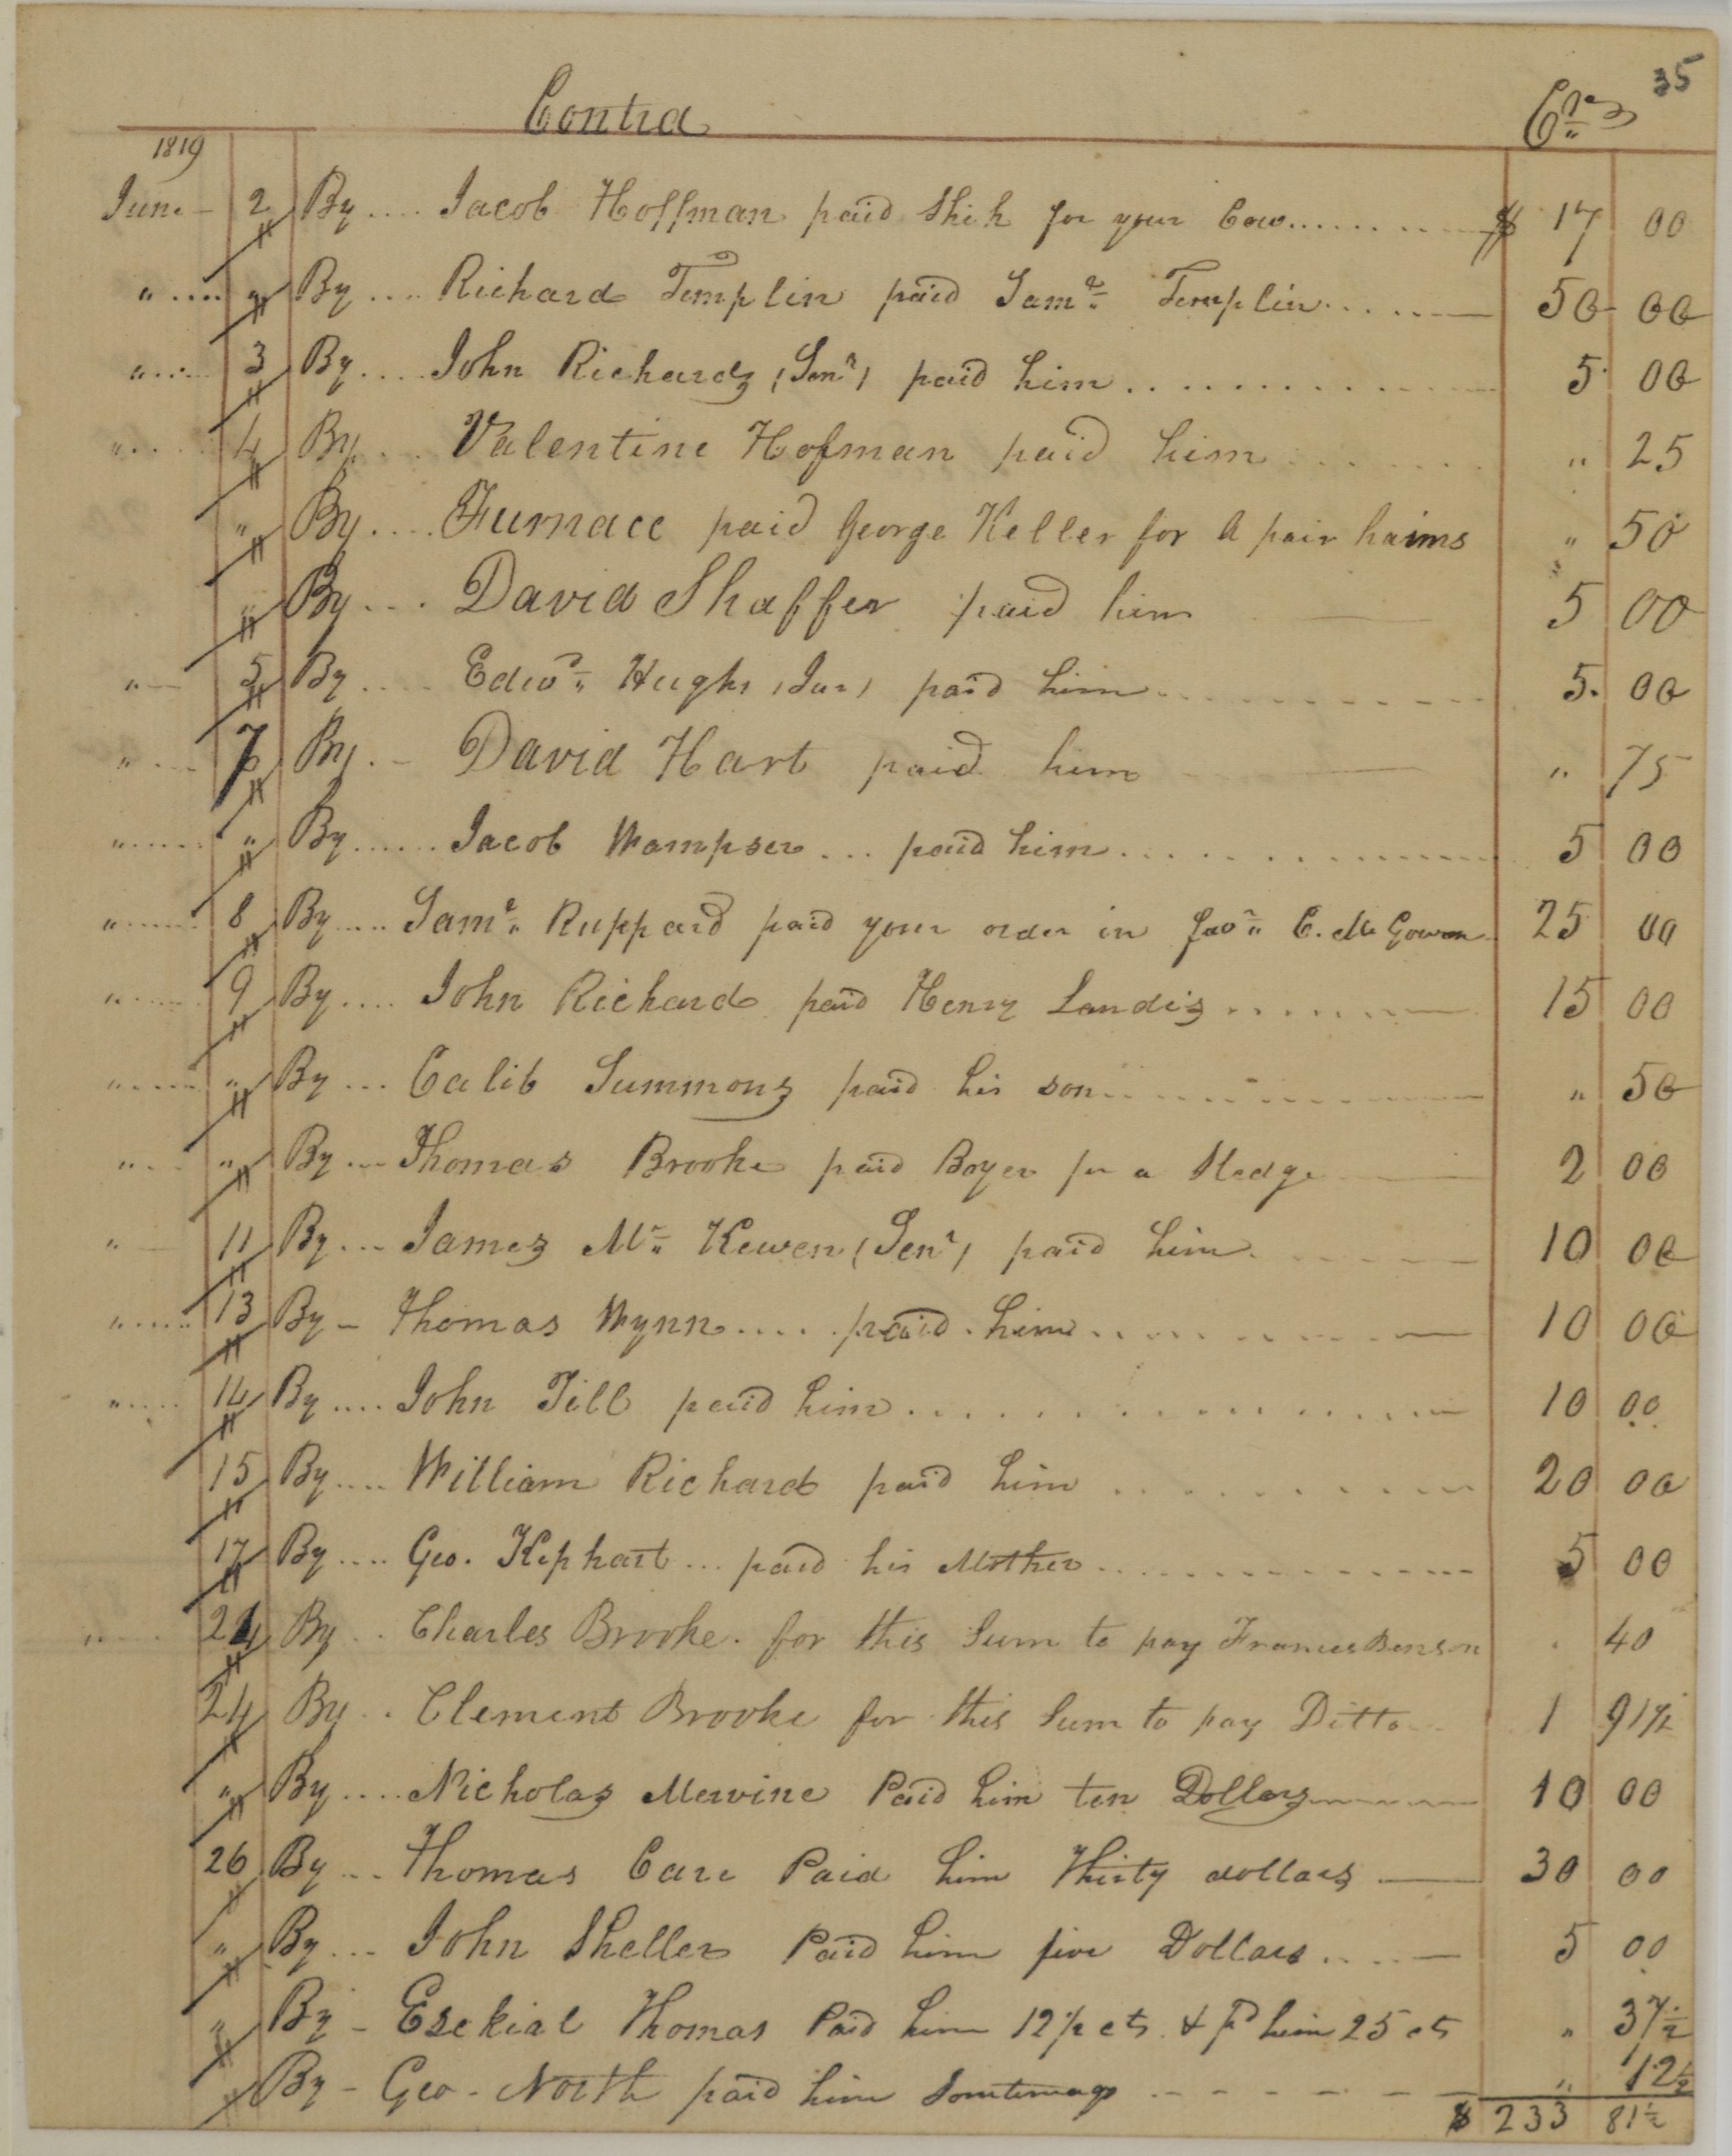 35
Contra Cr
1819
June 2 By .... Jacob Hoffman paid Shih for your Cow ........ $ 17 00
" .... " By .... Richard Templin paid Saml. Templin ...... 50 00
" .... 3 By .... John Richards (Senr) paid him ........ 5 00
" .... 4 By .... Valentine Hofman paid him ....... " 25
" By .... Furnace paid George Keller for a pair haims " 50
" By .... David Shaffer paid him 5 00
" 5 By .... Edwd. Hughs (Jun) paid him ........ 5. 00
" .... 7 By . - David Hart paid him " 75
" ...... " By ...... Jacob Wampser ... paid him ........ 5 00
" ...... 8 By .... Saml. Ruppard paid your order in favr. C. Mc Gowen 25 00
" ...... 9 By .... John Richards paid Henry Landis ........ 15 00
" ...... " By ... Calib Summons paid his son ........ " 50
" ... " By ... Thomas Brooke paid Boyer for a Sledge 2 00
" 11 By ... James Mc. Kewen (Senr) paid him 10 00
" ..... 13 By - Thomas Wynn .... paid him ........ 10 00
" ..... 14 By .... John Till paid him ........ 10 00
15 By .... William Richards paid him ........ 20 00
17 By .... Geo. Kephart ... paid his Mother ........ 5 00
" ..... 21 By .. Charles Brooke. for this Sum to pay Frances Benson 40
24 By .. Clement Brooke for this Sum to pay Ditto 1 91 1/2
" By .... Nicholas Mervine Paid him ten Dollars 10 00
26 By ... Thomas Care Paid him Thirty dollars 30 00
" By ... John Sheller Paid him five Dollars .... 5 00
" By - Ezekial Thomas Paid him 12 1/2 cts & pd him 25 cts " 37 1/2
" By - Geo. North paid him Sometimeago " 12 1/2
$ 233 81 1/2